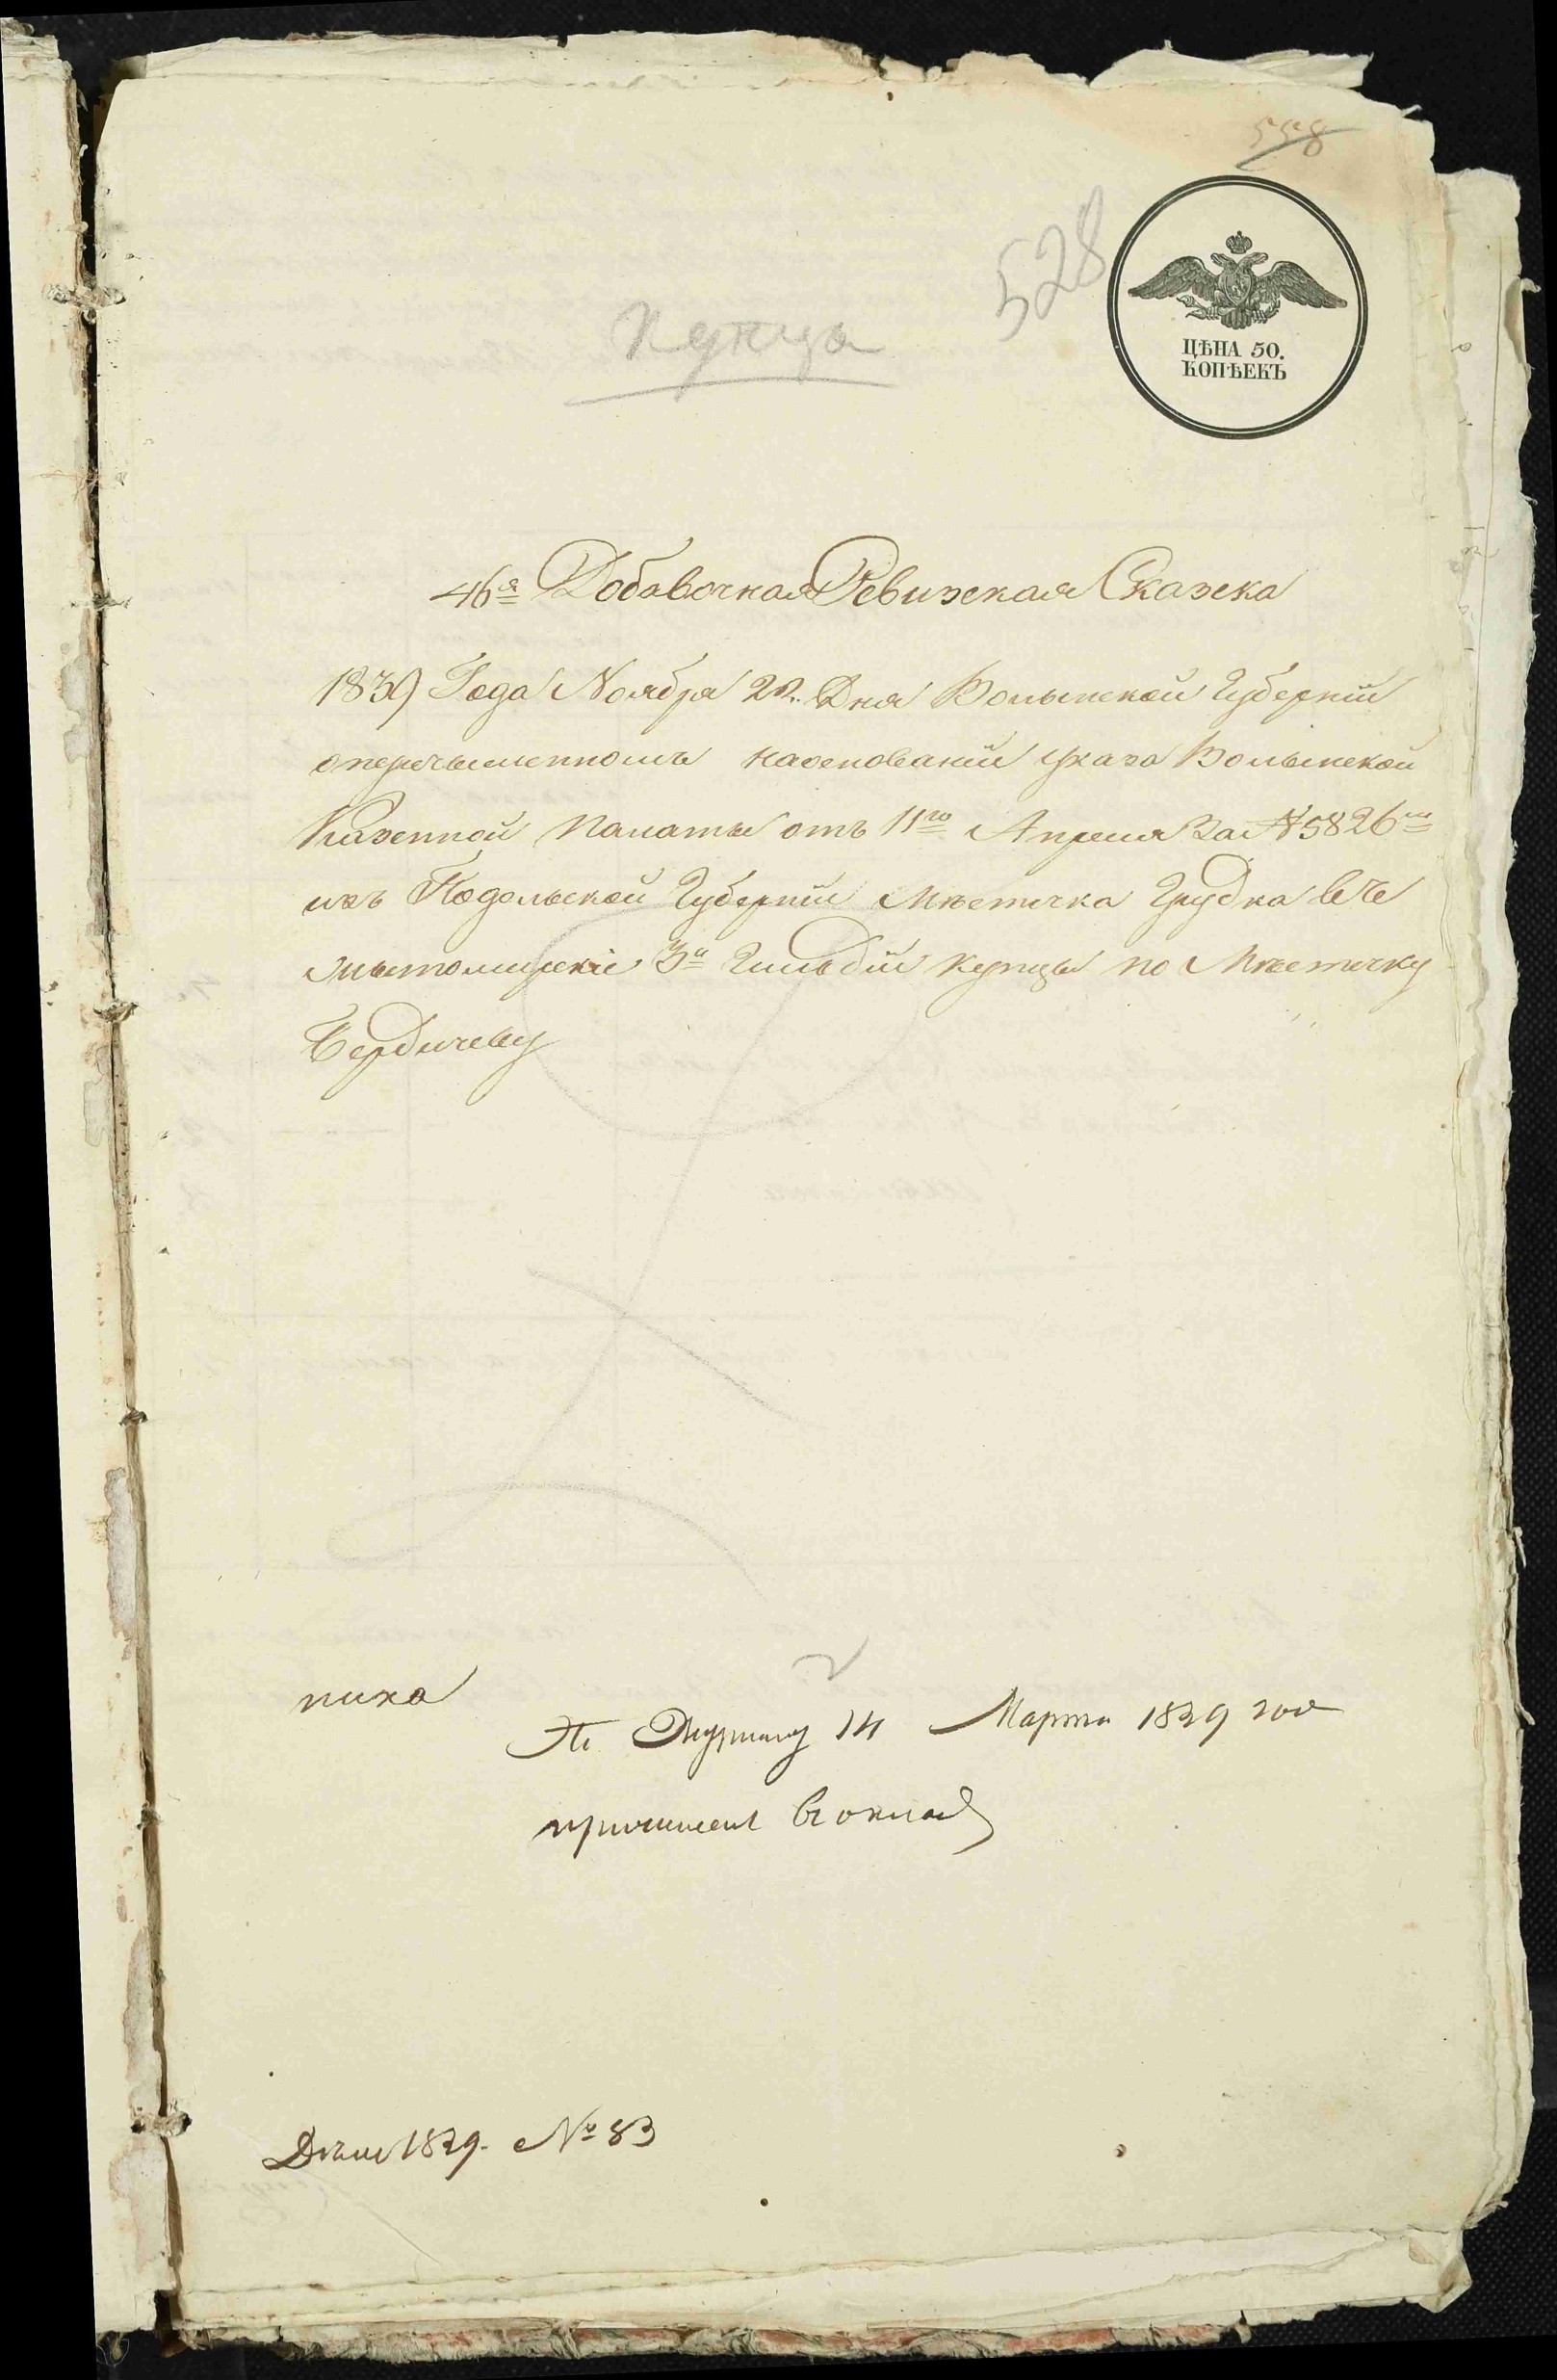 558
528
ЦѢНА 50.
КОПѢЕКЪ
купца
46я Добавочная Ревизская Сказка
1839 Года Ноября 22. Дня Волынской Губерніи
оперечисленномъ наоснованіи указа Волынской
Казенной Палаты отъ 11го Апреля За №5826мъ
изъ Подольской Губерніи Мѣстечка Грудка въ Жи
жытомирскіе 3й Гильдіи купцы по Мѣстечку
Бердичеву
По Журналу 14 Марта 1839 года
причислен въ оклад
Дѣло 1839. № 83